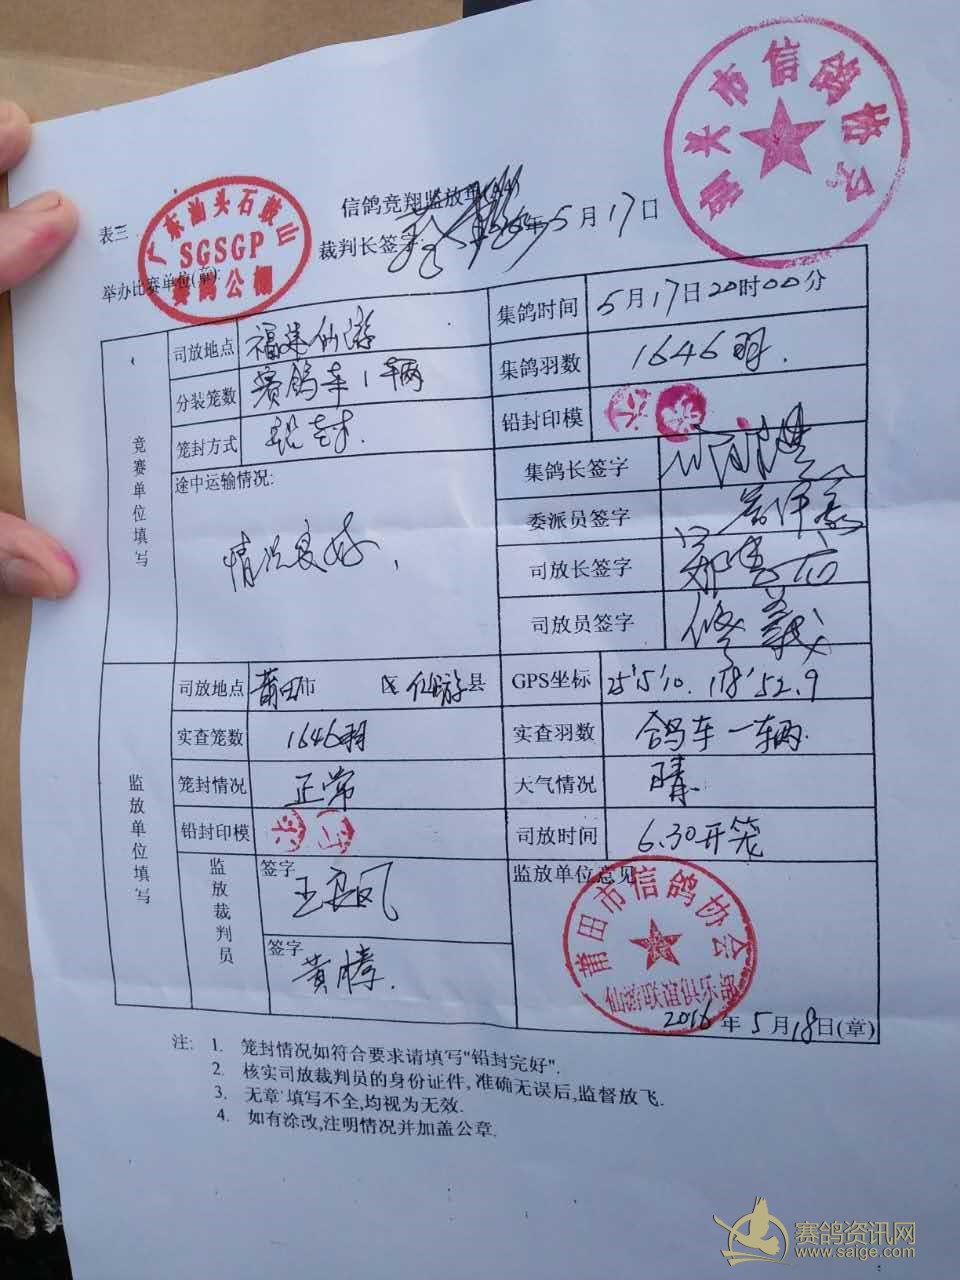 汕头市信鸽协会
广东汕头石鼓山
SGSGP
赛鸽公棚
信鸽竞翔监放单
表三
裁判长签字: 年5月17日
举办比赛单位(章):
竞赛单位填写
司放地点 福建仙游 集鸽时间 5月17日20时00分
分装笼数 赛鸽车1辆 集鸽羽数 1646羽.
笼封方式 铅封. 铅封印模
途中运输情况: 集鸽长签字
情况良好, 委派员签字
司放长签字
司放员签字
监放单位填写
司放地点 莆田市 区仙游县 GPS坐标 25'5'10. 118'52.9
实查笼数 1646羽 实查羽数 鸽车一辆.
笼封情况 正常 天气情况 晴
铅封印模 司放时间 6.30开笼
监放裁判员 签字 监放单位意见
签字 黄
莆田市信鸽协会
2016年5月18日(章)
注: 1. 笼封情况如符合要求请填写"铅封完好".
2. 核实司放裁判员的身份证件,准确无误后,监督放飞.
3. 无章'填写不全,均视为无效.
4. 如有涂改,注明情况并加盖公章.
赛鸽资讯网
www.saige.com